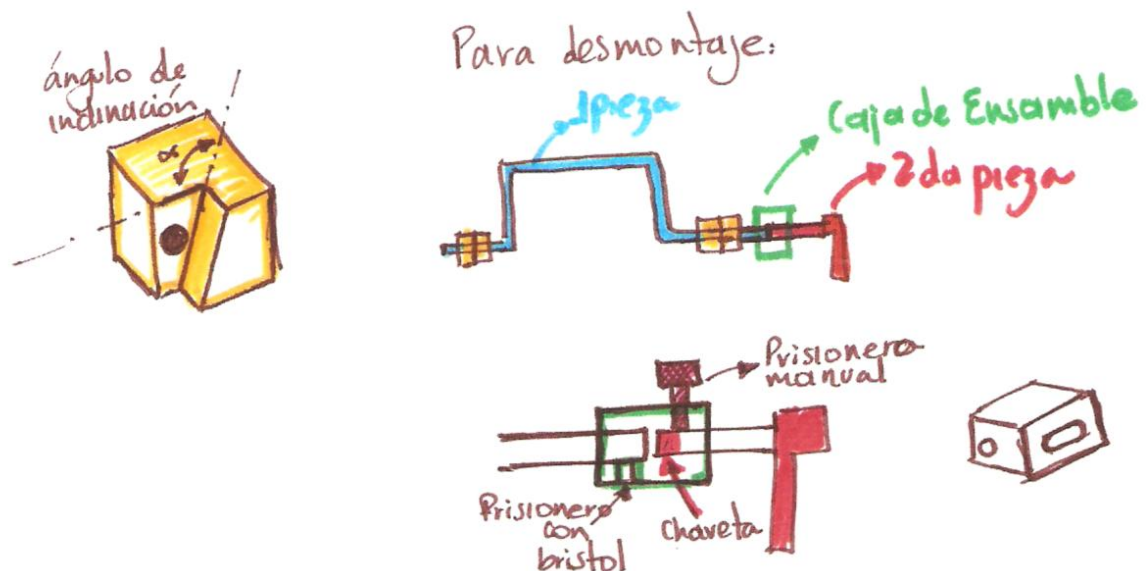 ángulo de
inclinación
α
Para desmontaje:
1pieza
Caja de Ensamble
2da pieza
Prisionero
manual
Prisionero
con
bristol
chaveta